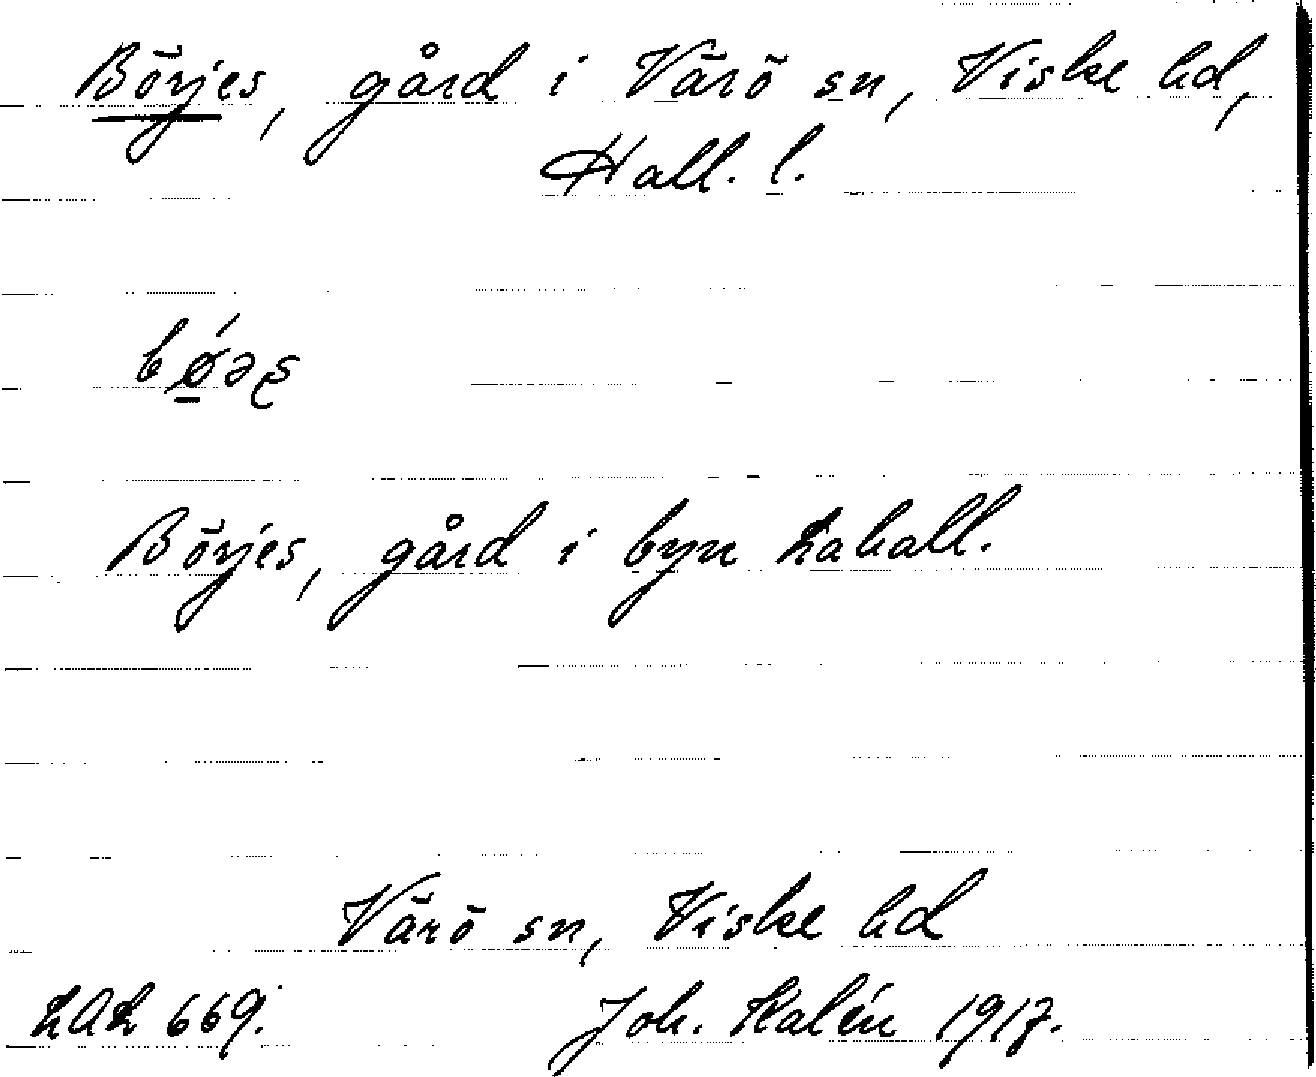 Börjes, gård i Värö sn, Viske hd,
Hall. l.
Börjes, gård i byn Lahall.
Värö sn, Viske hd
LAL 669. Joh. Kalén 1917.